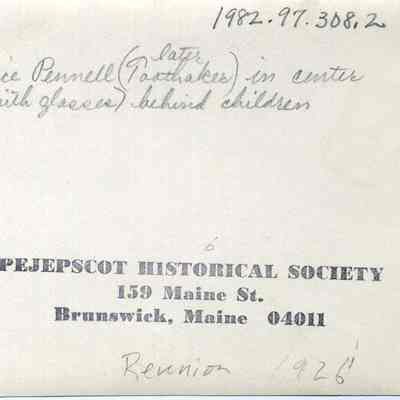 1982.97.308.2
later
ice Pennell (Toothaker) in center
with glasses) behind children
PEJEPSCOT HISTORICAL SOCIETY
159 Maine St.
Brunswick, Maine 04011
Reunion 1926